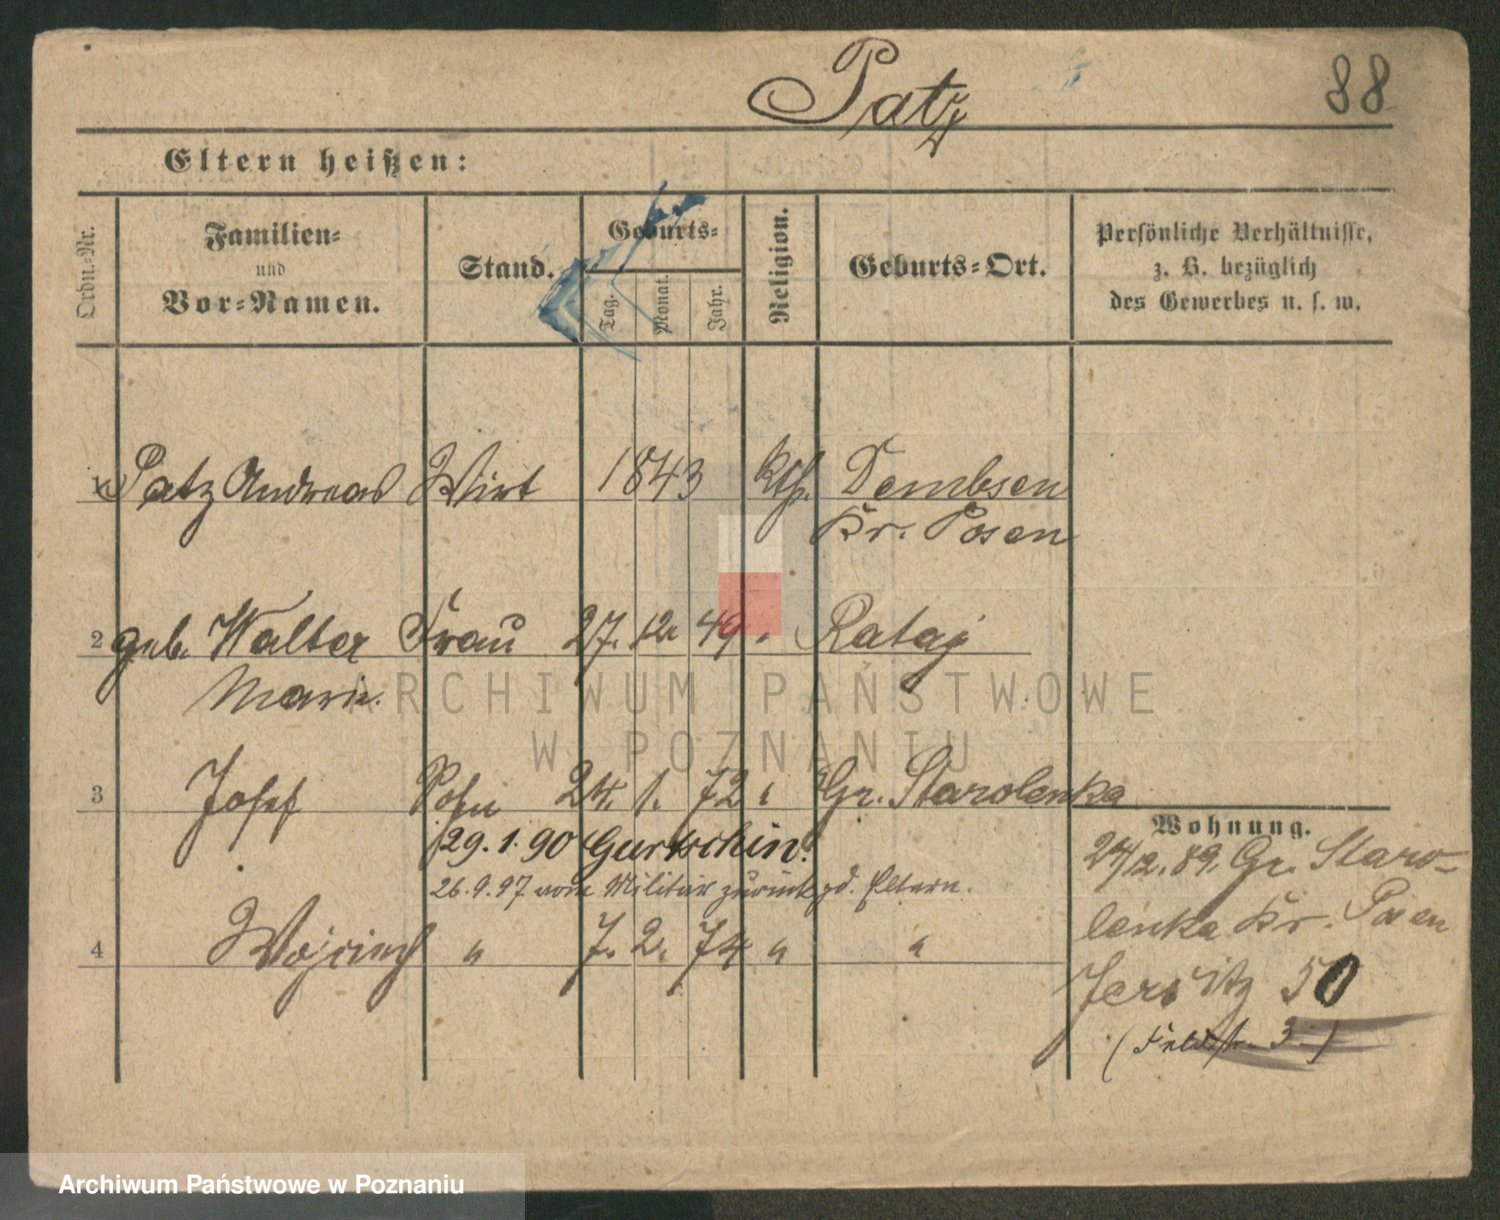 Patz
88
Eltern heißen:
Ordn.-Nr.
Familien-
und
Vor-Namen.
Stand.
Geburts-
Tag.
Monat.
Jahr.
Religion.
Geburts-Ort.
Persönliche Verhältnisse,
z. B. bezüglich
des Gewerbes u. s. w.
1 Patz Andreas Wirt 1843 kth. Dembsen
Kr. Posen
2 geb. Walter Frau 27. 12. 49 " Rataj
Marie.
3 Josef Sohn 24. 1. 72 " Gr. Starolenka
29.1.90 Gurtschin.
26.9.97 vom Militär zurück zd. Eltern.
4 Wojciech " 7. 2. 74 " "
Wohnung.
24/2.89. Gr. Staro-
lenka Kr. Posen
Jersitz 50
(Feldstr. 3.)
ARCHIWUM PAŃSTWOWE
W POZNANIU
Archiwum Państwowe w Poznaniu